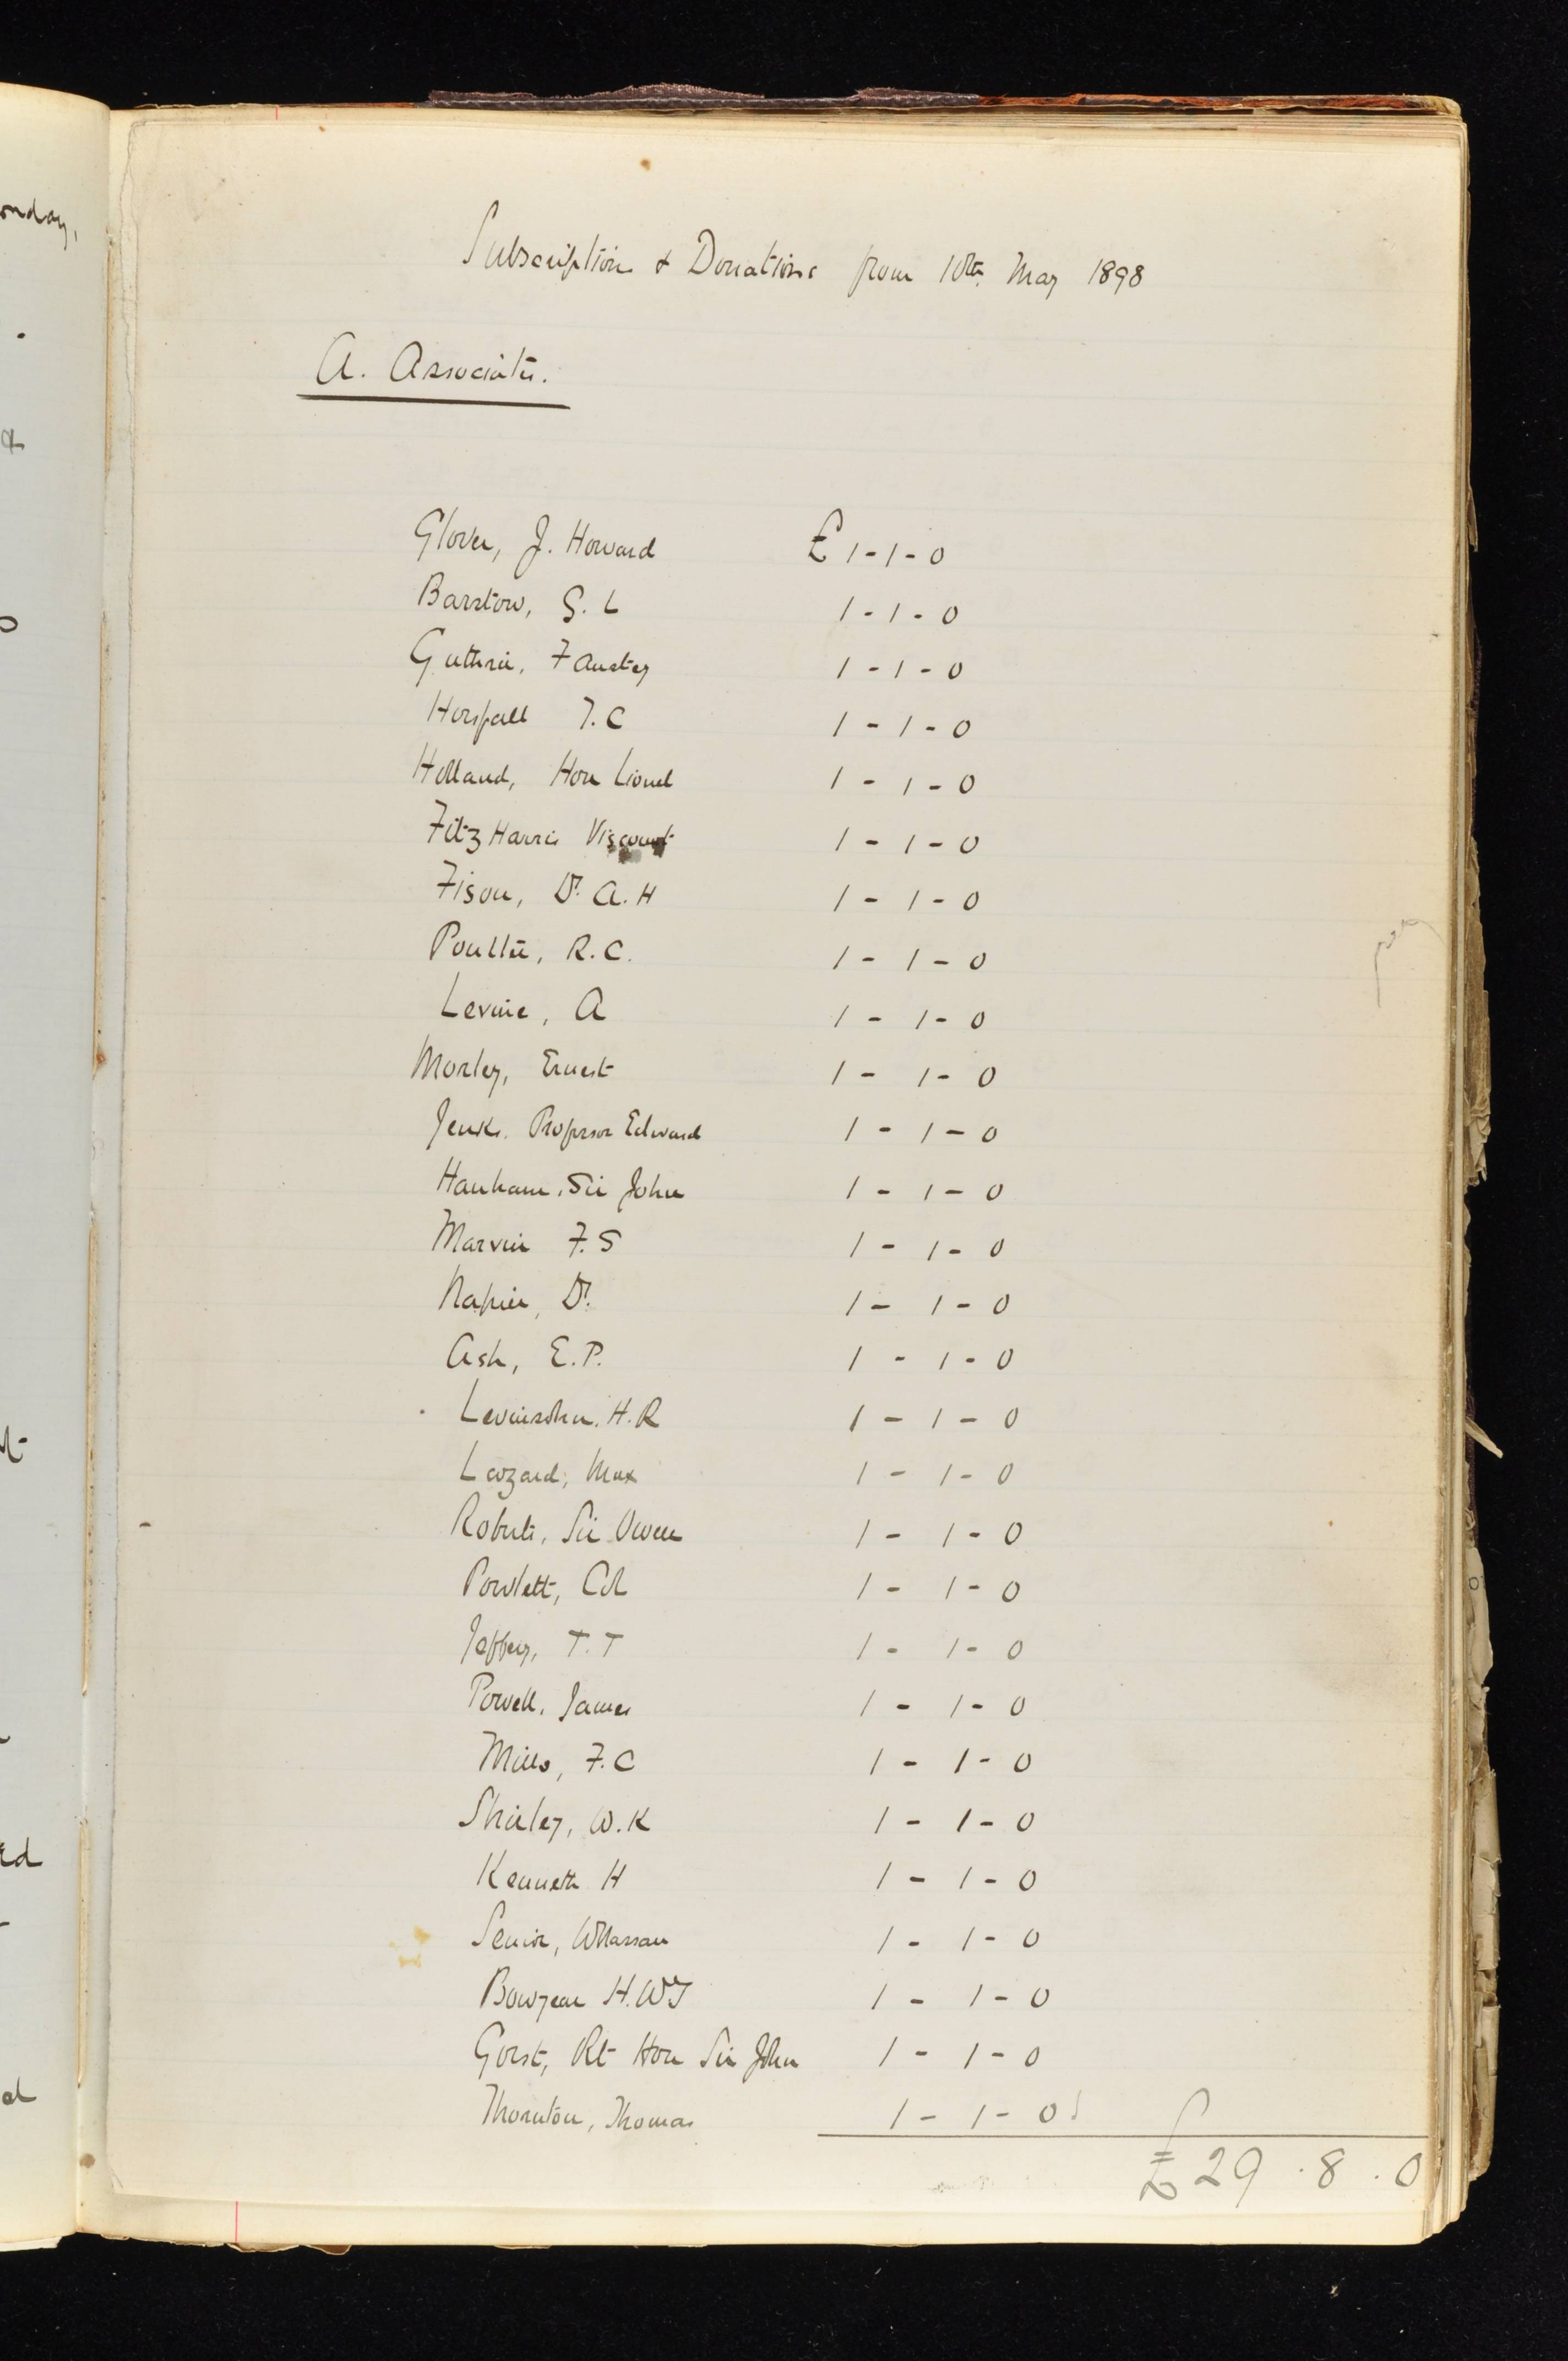 onday,
&
Subscriptions & Donations from 10th May 1898
A. Associates.
Glover, J. Howard £ 1-1-0
Barstow, G. L 1-1-0
Guthrie, F Anstey 1-1-0
Horsfall T.C 1-1-0
Holland, Hon Lionel 1-1-0
FitzHarris Viscount 1-1-0
Fison, Dr. A.H 1-1-0
Poulter, R.C. 1-1-0
Levine, A 1-1-0
Morley, Ernest 1-1-0
Jenks. Professor Edward 1-1-0
Hanham, Sir John 1-1-0
Marvin F.S 1-1-0
Napier, Dr. 1-1-0
Ash, E.P. 1-1-0
Levinsohn. H.R 1-1-0
Lazard, Max 1-1-0
Roberts, Sir Owen 1-1-0
Powlett, Col 1-1-0
Jeffery, T.T 1-1-0
Powell, James 1-1-0
Mills, F.C 1-1-0
Shirley, W.K 1-1-0
Kenneth H 1-1-0
Senior, WNassau 1-1-0
Bowyear H.WT 1-1-0
Gorst, Rt Hon Sir John 1-1-0
Thornton, Thomas 1-1-0
£29.8.0